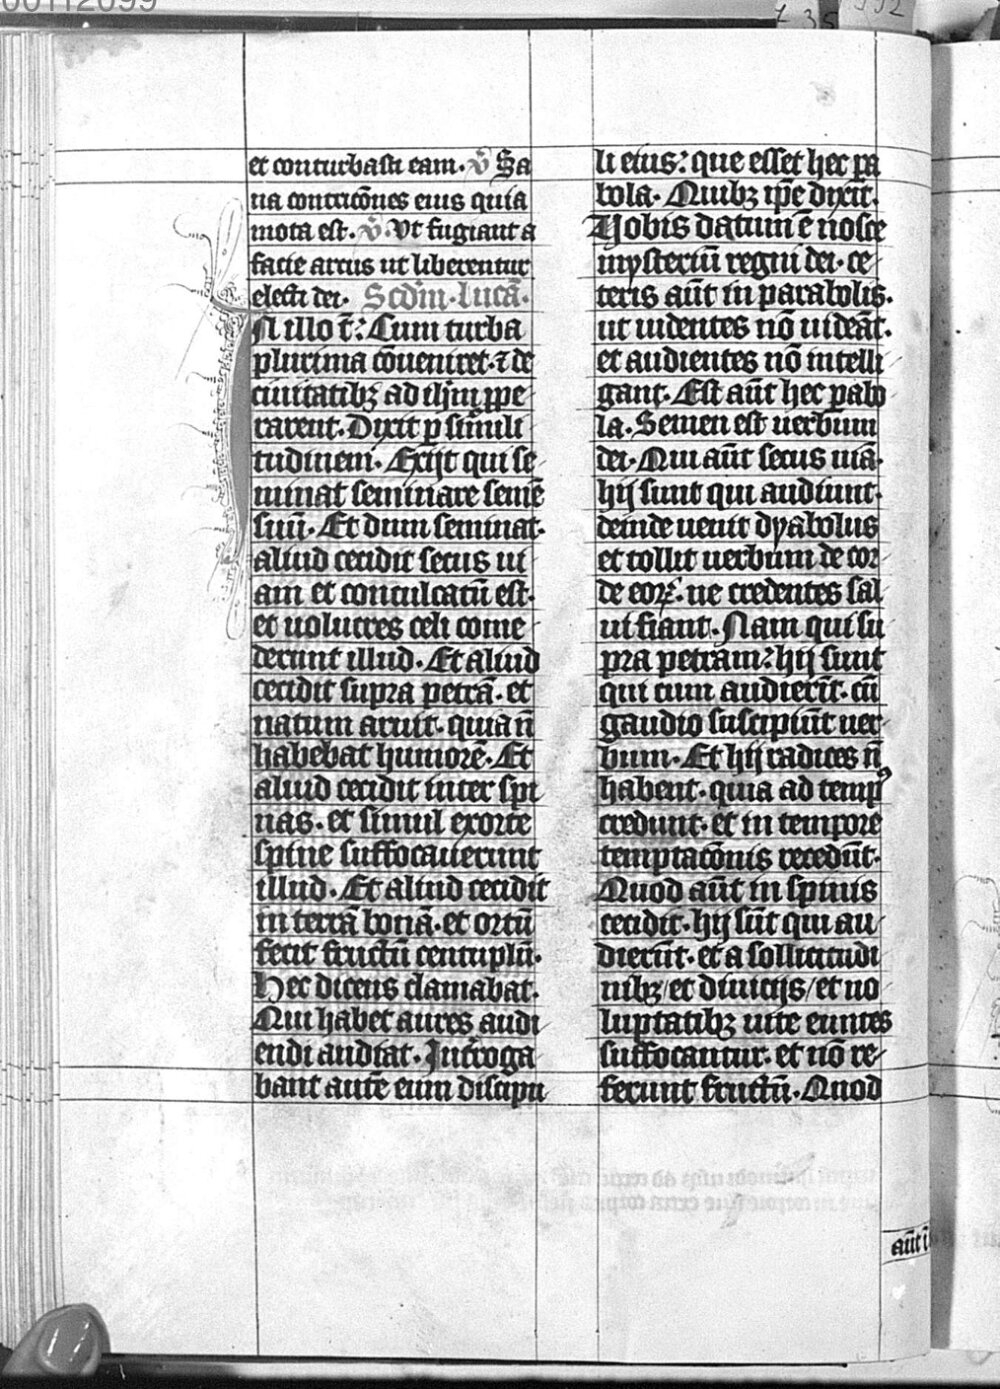 et conturbasti eam. ꝟ Sa
na contricōnes eius quia
mota est. ꝟ. Ut fugiant a
facie arcus ut liberentur
electi dei. Scdm̄. lucā.
N illo t̄: Cum turba
plurima cōueniret. ⁊ de
ciuitatibꝫ ad ih̄m ꝓpe
rarent. Dixit ꝑ simili
tudinem. Exijt qui se
minat seminare semē
suū. Et dum seminat.
aliud cecidit secus ui
am et conculcatū est.
et uolucres celi come
derunt illud. Et aliud
cecidit supra petrā. et
natum aruit. quia n̄
habebat humorē. Et
aliud cecidit inter spi
nas. et simul exorte
spine suffocauerunt
illud. Et aliud cecidit
in terrā bonā. et ortū
fecit fructū centuplū.
Hec dicens clamabat.
Qui habet aures audi
endi audiat. Int̄roga
bant autē eum discipu
li eius: que esset hec ꝑa
bola. Quibꝫ ip̄e dixit.
Uobis datum ē nosce
mysteriū regni dei. ce
teris aūt in parabolis.
ut uidentes nō uideāt.
et audientes nō intelli
gant. Est aūt hec ꝑabo
la. Semen est uerbum
dei. Qui aūt secus uiā.
hij sunt qui audiunt.
deinde uenit dyabolus
et tollit uerbum de cor
de eoꝝ. ne credentes sal
ui fiant. Nam qui su
pra petram: hij sunt
qui cum audierīt. cū
gaudio suscipiūt uer
bum. Et hij radices n̄
habent. quia ad tempꝰ
credunt. et in tempore
temptacōnis recedūt.
Quod aūt in spinis
cecidit. hij sūt qui au
dierūt. et a sollicitudi
nibꝫ/et diuicijs/et uo
luptatibꝫ uite euntes
suffocantur. et nō re
ferunt fructū. Quod
aūt ī